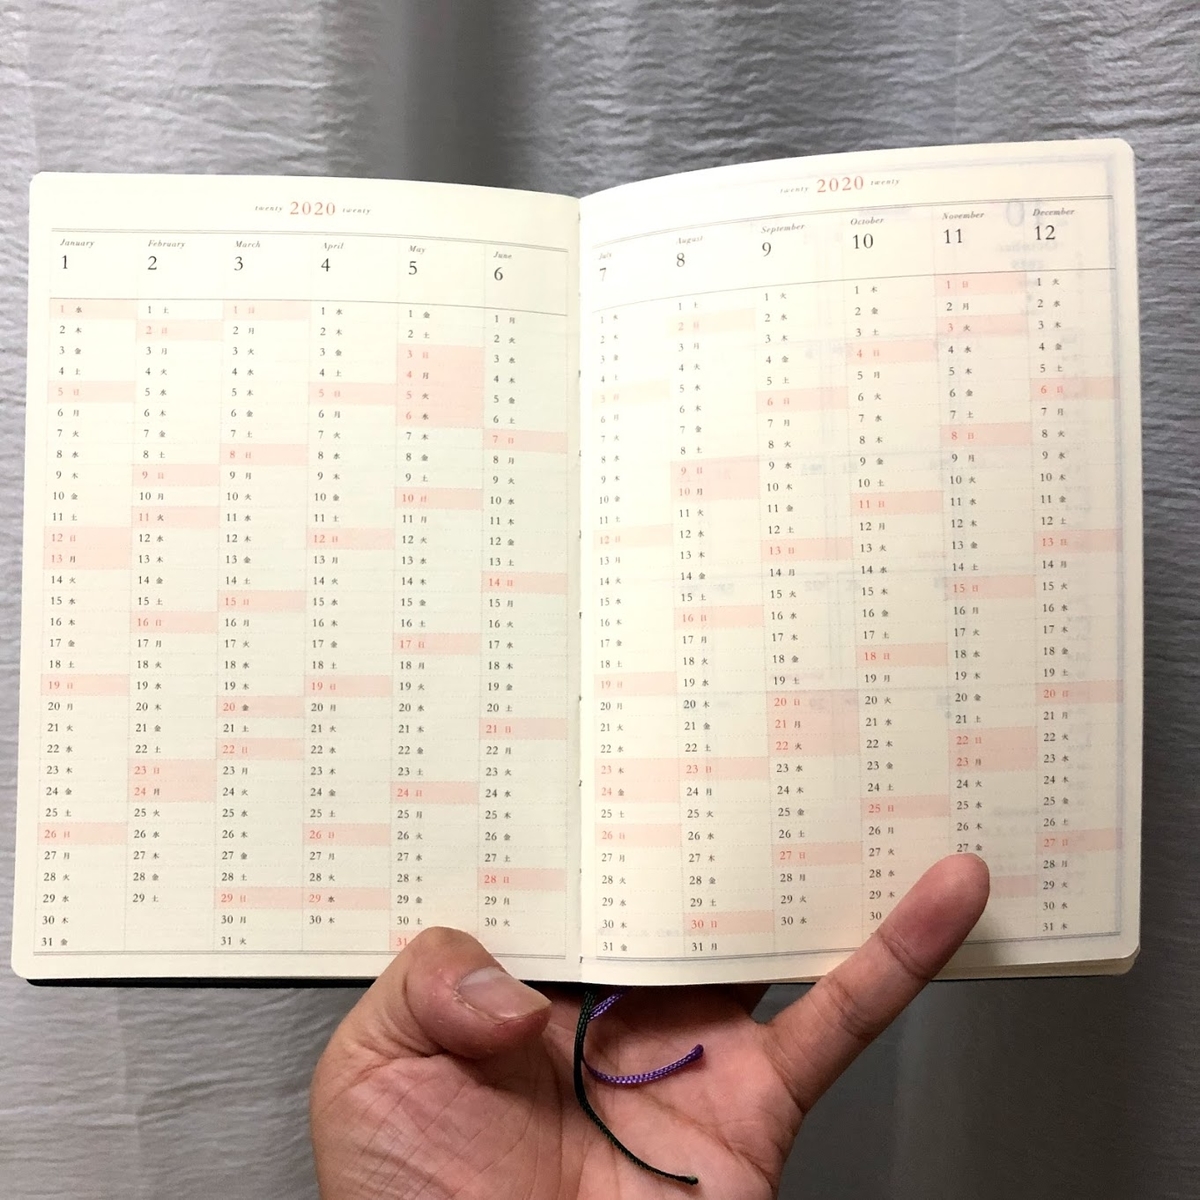 twenty 2020 twenty
January February March April May June
1 2 3 4 5 6
1 水 1 土 1 日 1 水 1 金 1 月
2 木 2 日 2 月 2 木 2 土 2 火
3 金 3 月 3 火 3 金 3 日 3 水
4 土 4 火 4 水 4 土 4 月 4 木
5 日 5 水 5 木 5 日 5 火 5 金
6 月 6 木 6 金 6 月 6 水 6 土
7 火 7 金 7 土 7 火 7 木 7 日
8 水 8 土 8 日 8 水 8 金 8 月
9 木 9 日 9 月 9 木 9 土 9 火
10 金 10 月 10 火 10 金 10 日 10 水
11 土 11 火 11 水 11 土 11 月 11 木
12 日 12 水 12 木 12 日 12 火 12 金
13 月 13 木 13 金 13 月 13 水 13 土
14 火 14 金 14 土 14 火 14 木 14 日
15 水 15 土 15 日 15 水 15 金 15 月
16 木 16 日 16 月 16 木 16 土 16 火
17 金 17 月 17 火 17 金 17 日 17 水
18 土 18 火 18 水 18 土 18 月 18 木
19 日 19 水 19 木 19 日 19 火 19 金
20 月 20 木 20 金 20 月 20 水 20 土
21 火 21 金 21 土 21 火 21 木 21 日
22 水 22 土 22 日 22 水 22 金 22 月
23 木 23 日 23 月 23 木 23 土 23 火
24 金 24 月 24 火 24 金 24 日 24 水
25 土 25 火 25 水 25 土 25 月 25 木
26 日 26 水 26 木 26 日 26 火 26 金
27 月 27 木 27 金 27 月 27 水 27 土
28 火 28 金 28 土 28 火 28 木 28 日
29 水 29 土 29 日 29 水 29 金 29 月
30 木 30 月 30 木 30 土 30 火
31 金 31 火 31
twenty 2020 twenty
July August September October November December
7 8 9 10 11 12
1 水 1 土 1 火 1 木 1 日 1 火
2 木 2 日 2 水 2 金 2 月 2 水
3 金 3 月 3 木 3 土 3 火 3 木
4 土 4 火 4 金 4 日 4 水 4 金
5 日 5 水 5 土 5 月 5 木 5 土
6 月 6 木 6 日 6 火 6 金 6 日
7 火 7 金 7 月 7 水 7 土 7 月
8 水 8 土 8 火 8 木 8 日 8 火
9 木 9 日 9 水 9 金 9 月 9 水
10 金 10 月 10 木 10 土 10 火 10 木
11 土 11 火 11 金 11 日 11 水 11 金
12 日 12 水 12 土 12 月 12 木 12 土
13 月 13 木 13 日 13 火 13 金 13 日
14 火 14 金 14 月 14 水 14 土 14 月
15 水 15 土 15 火 15 木 15 日 15 火
16 木 16 日 16 水 16 金 16 月 16 水
17 金 17 月 17 木 17 土 17 火 17 木
18 土 18 火 18 金 18 日 18 水 18 金
19 日 19 水 19 土 19 月 19 木 19 土
20 月 20 木 20 日 20 火 20 金 20 日
21 火 21 金 21 月 21 水 21 土 21 月
22 水 22 土 22 火 22 木 22 日 22 火
23 木 23 日 23 水 23 金 23 月 23 水
24 金 24 月 24 木 24 土 24 火 24 木
25 土 25 火 25 金 25 日 25 水 25 金
26 日 26 水 26 土 26 月 26 木 26 土
27 月 27 木 27 日 27 火 27 金 27 日
28 火 28 金 28 月 28 水 28 月
29 水 29 土 29 火 29 木 29 火
30 木 30 日 30 水 30 30 水
31 金 31 月 31 木